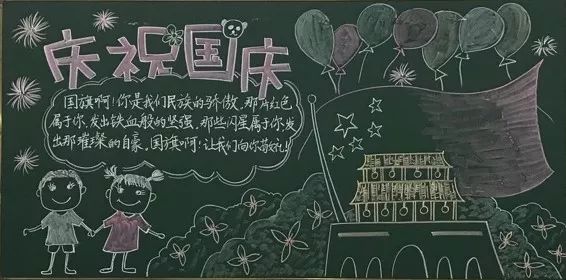 庆祝国庆
国旗啊！你是我们民族的骄傲，那片红色
属于你，发出铁血般的坚强，那些闪星属于你，发
出那璀璨的自豪，国旗啊！让我们向你敬礼！